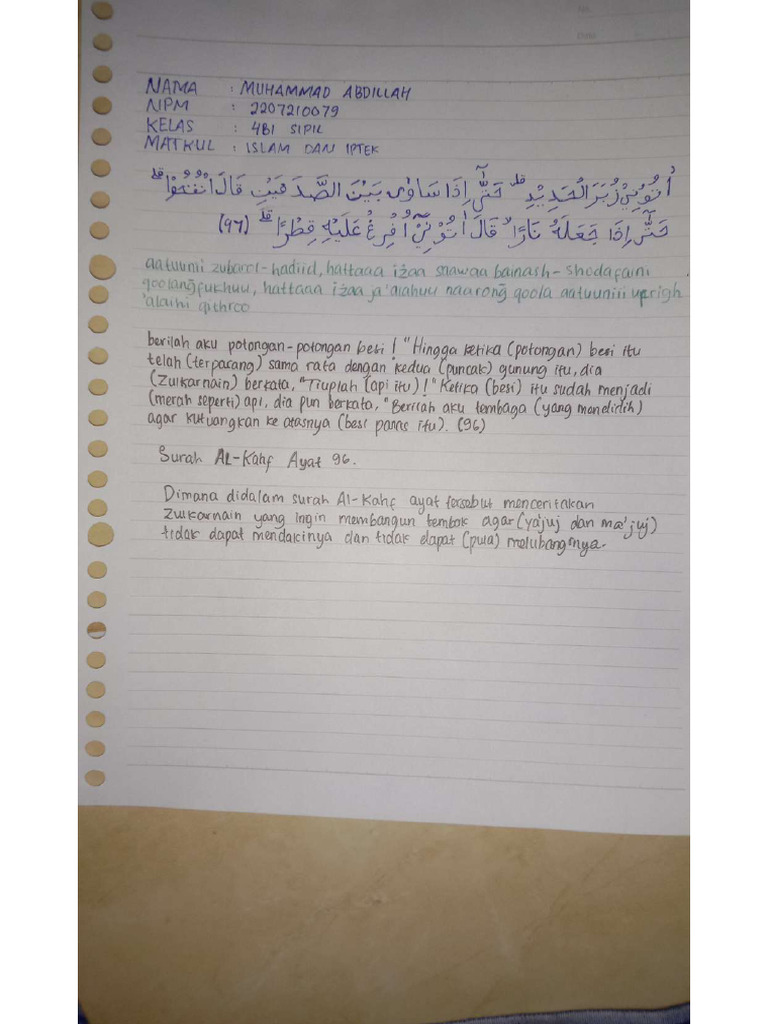 No.
Date
NAMA : MUHAMMAD ABDILLAH
NIPM : 2207210079
KELAS : 4B1 SIPIL
MATKUL : ISLAM DAN IPTEK
اٰتُوْنِيْ زُبَرَ الْحَدِيْدِۗ حَتّٰىٓ اِذَا سَاوٰى بَيْنَ الصَّدَفَيْنِ قَالَ انْفُخُوْا ۗ
حَتّٰىٓ اِذَا جَعَلَهٗ نَارًا ۙ قَالَ اٰتُوْنِيْٓ اُفْرِغْ عَلَيْهِ قِطْرًا ۗ (٩٦)
aatuunii zubarol-hadiid, hattaaa iżaa saawaa bainash-shodafaini
qoolanğfukhuu, hattaaa iżaa ja'alahuu naarong qoola aatuuniii ufrigh
'alaihi qithroo
berilah aku potongan-potongan besi ! "Hingga ketika (potongan) besi itu
telah (terpasang) sama rata dengan kedua (puncak) gunung itu, dia
(Zulkarnain) berkata, "Tiuplah (api itu) !" Ketika (besi) itu sudah menjadi
(merah seperti) api, dia pun berkata, "Berilah aku tembaga (yang mendidih)
agar kutuangkan ke atasnya (besi panas itu). (96)
Surah AL-Kahf Ayat 96.
Dimana didalam surah Al-Kahf ayat tersebut menceritakan
Zulkarnain yang ingin membangun tembok agar (ya'juj dan ma'juj)
tidak dapat mendakinya dan tidak dapat (pula) melubangnya.